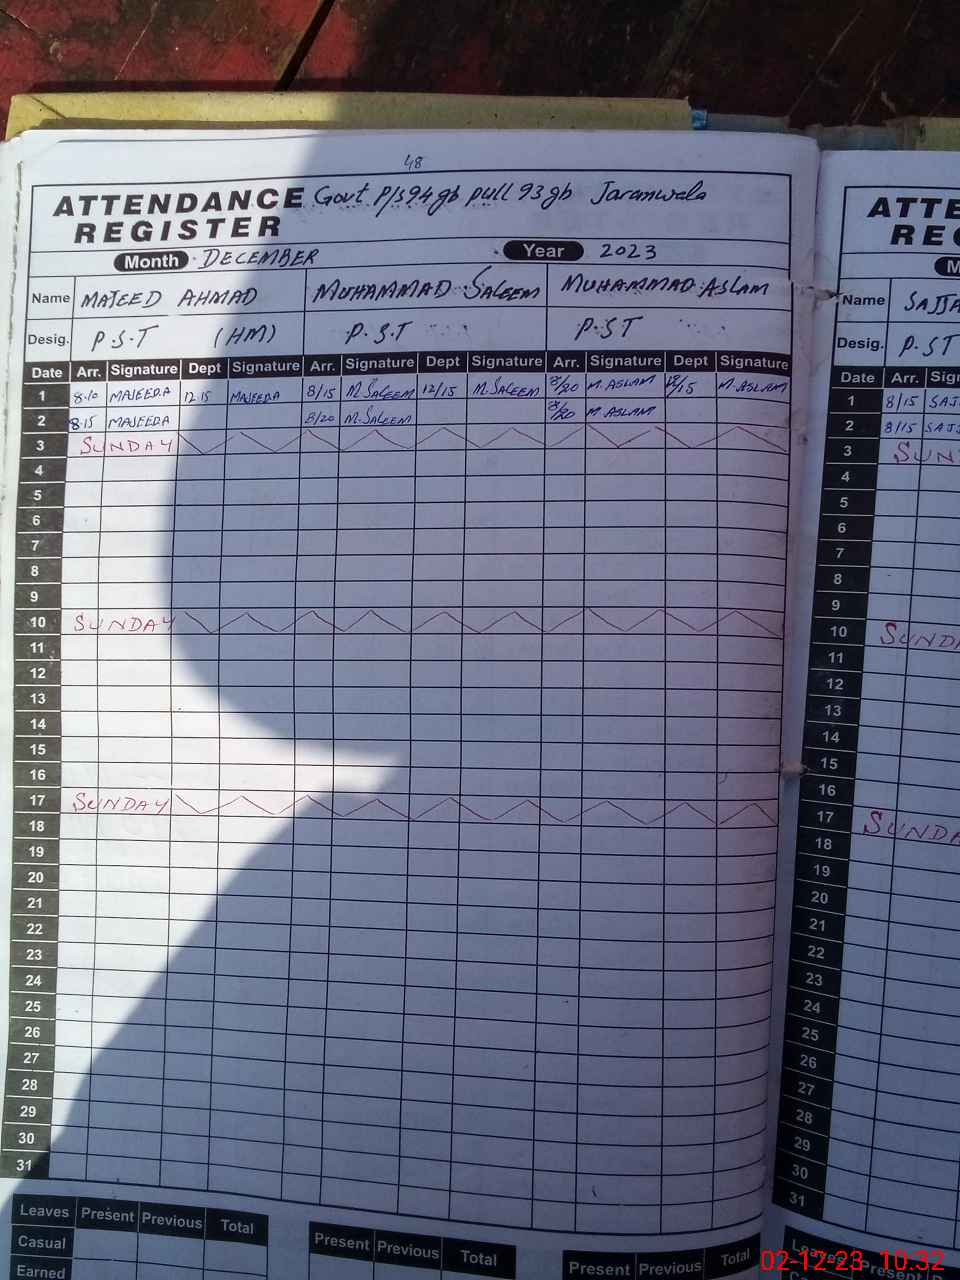 48
ATTENDANCE REGISTER Govt P/s 94 gb pull 93 gb Jaranwala
Month DECEMBER Year 2023
Name MAJEED AHMAD MUHAMMAD SALEEM MUHAMMAD ASLAM
Desig. P.S.T (HM) P.S.T P.ST
Date Arr. Signature Dept Signature Arr. Signature Dept Signature Arr. Signature Dept Signature
1 8.10 MAJEED.A 12 15 MAJEED.A 8/15 M.SALEEM 12/15 M.SALEEM 8/20 M.ASLAM /15 M.ASLAM
2 8.15 MAJEED.A 8/20 M.SALEEM 8/20 M.ASLAM
3 SUNDAY
4
5
6
7
8
9
10 SUNDAY
11
12
13
14
15
16
17 SUNDAY
18
19
20
21
22
23
24
25
26
27
28
29
30
31
Leaves Present Previous Total Present Previous Total Present Previous Total
Casual
Earned
ATTE
REG
M
Name SAJJA
Desig. P.ST
Date Arr. Sign
1 8/15 SAJJ
2 8/15 SAJJ
3 SUN
4
5
6
7
8
9
10 SUNDA
11
12
13
14
15
16
17 SUNDA
18
19
20
21
22
23
24
25
26
27
28
29
30
31
Leaves Present
02-12-23 10:32